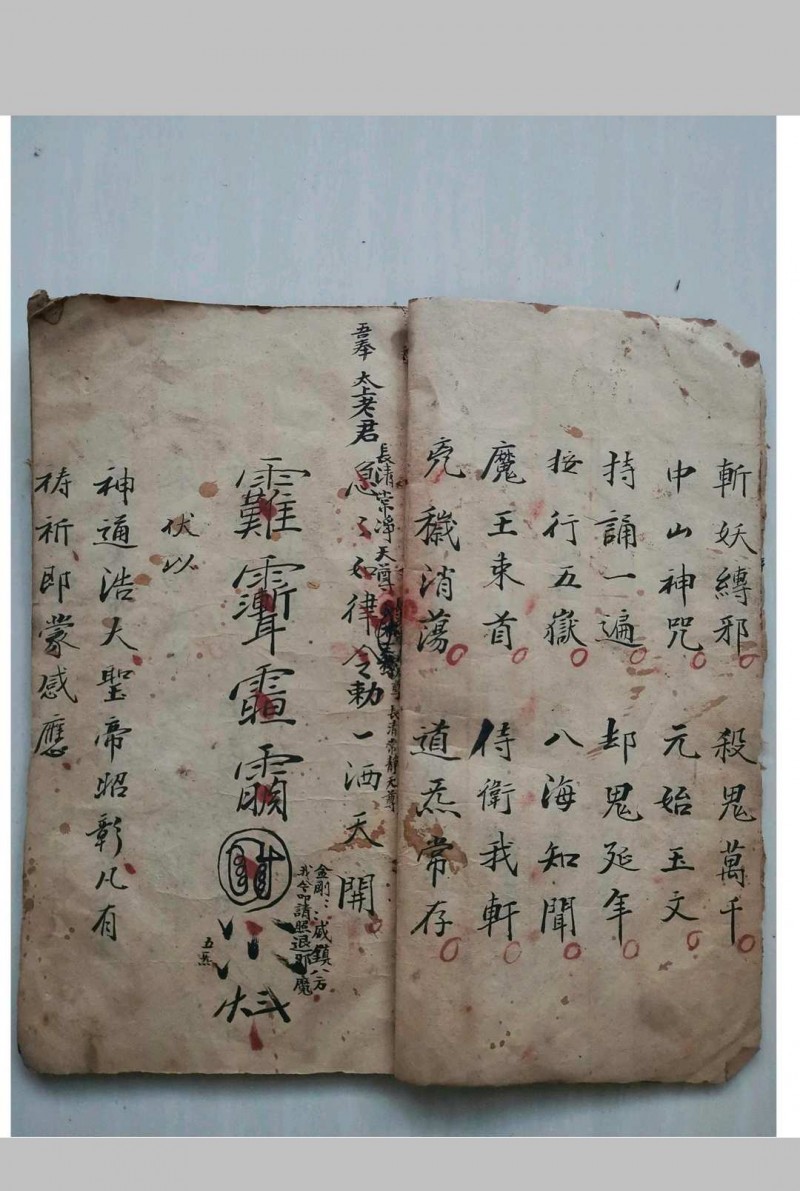 斬妖縛邪 殺鬼萬千
中山神咒 元始玉文
持誦一遍 却鬼延年
按行五嶽 八海知聞
魔王束首 侍衛我軒
兇穢消蕩 道炁常存
長清常靜天尊
吾奉 太上老君
急〻如律令勅一洒天開
長清常淨天尊
金剛〻〻威鎮八方
我今叩請照退邪魔
五
伏以
神通浩大聖帝昭彰凡有
祷祈即蒙感應